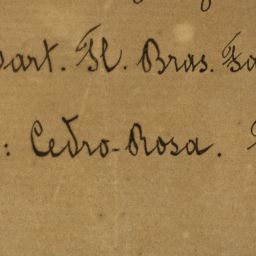 art. Fl. Bras.
: Cedro-Rosa.